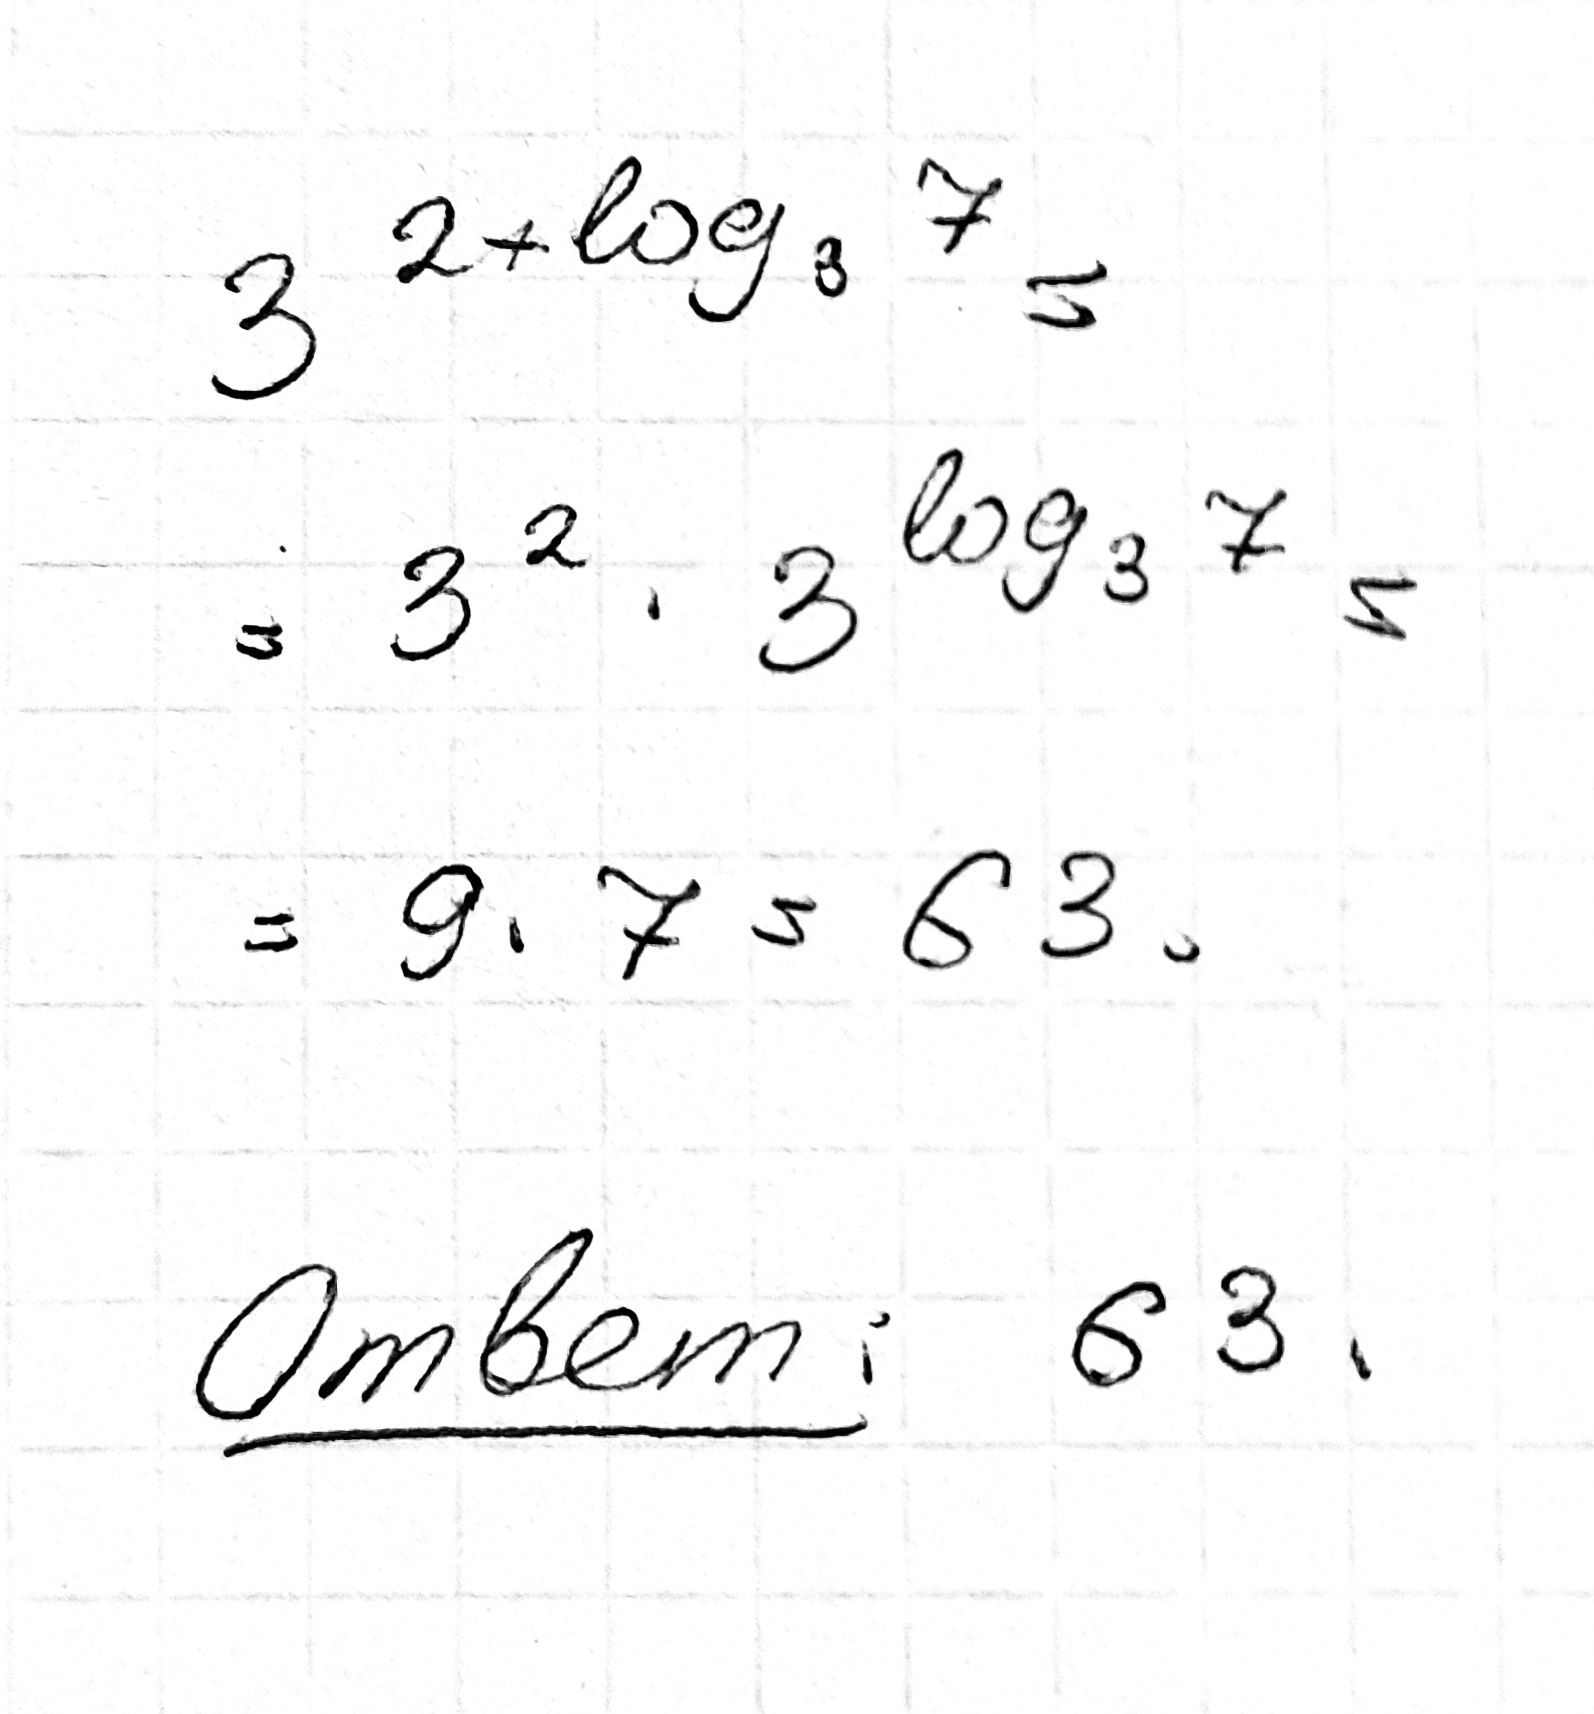 3^{2+log_3 7} =
= 3^2 · 3^{log_3 7} =
= 9 · 7 = 63.
Ответ: 63.